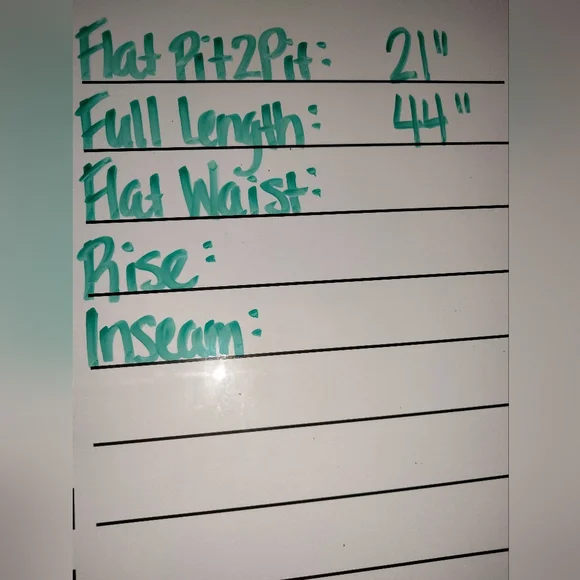 Flat Pit2Pit: 21"
Full Length: 44"
Flat Waist:
Rise:
Inseam: